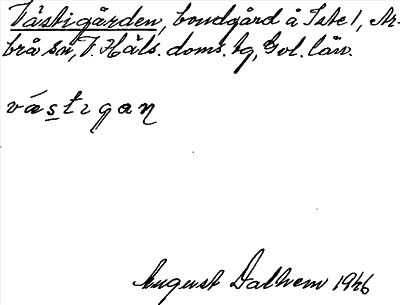 Västigården, bondgård å Iste 1, Ar-
brå sn, V. Häls. doms. bg, Gvl. län.
västigan
August Dalhem 1946